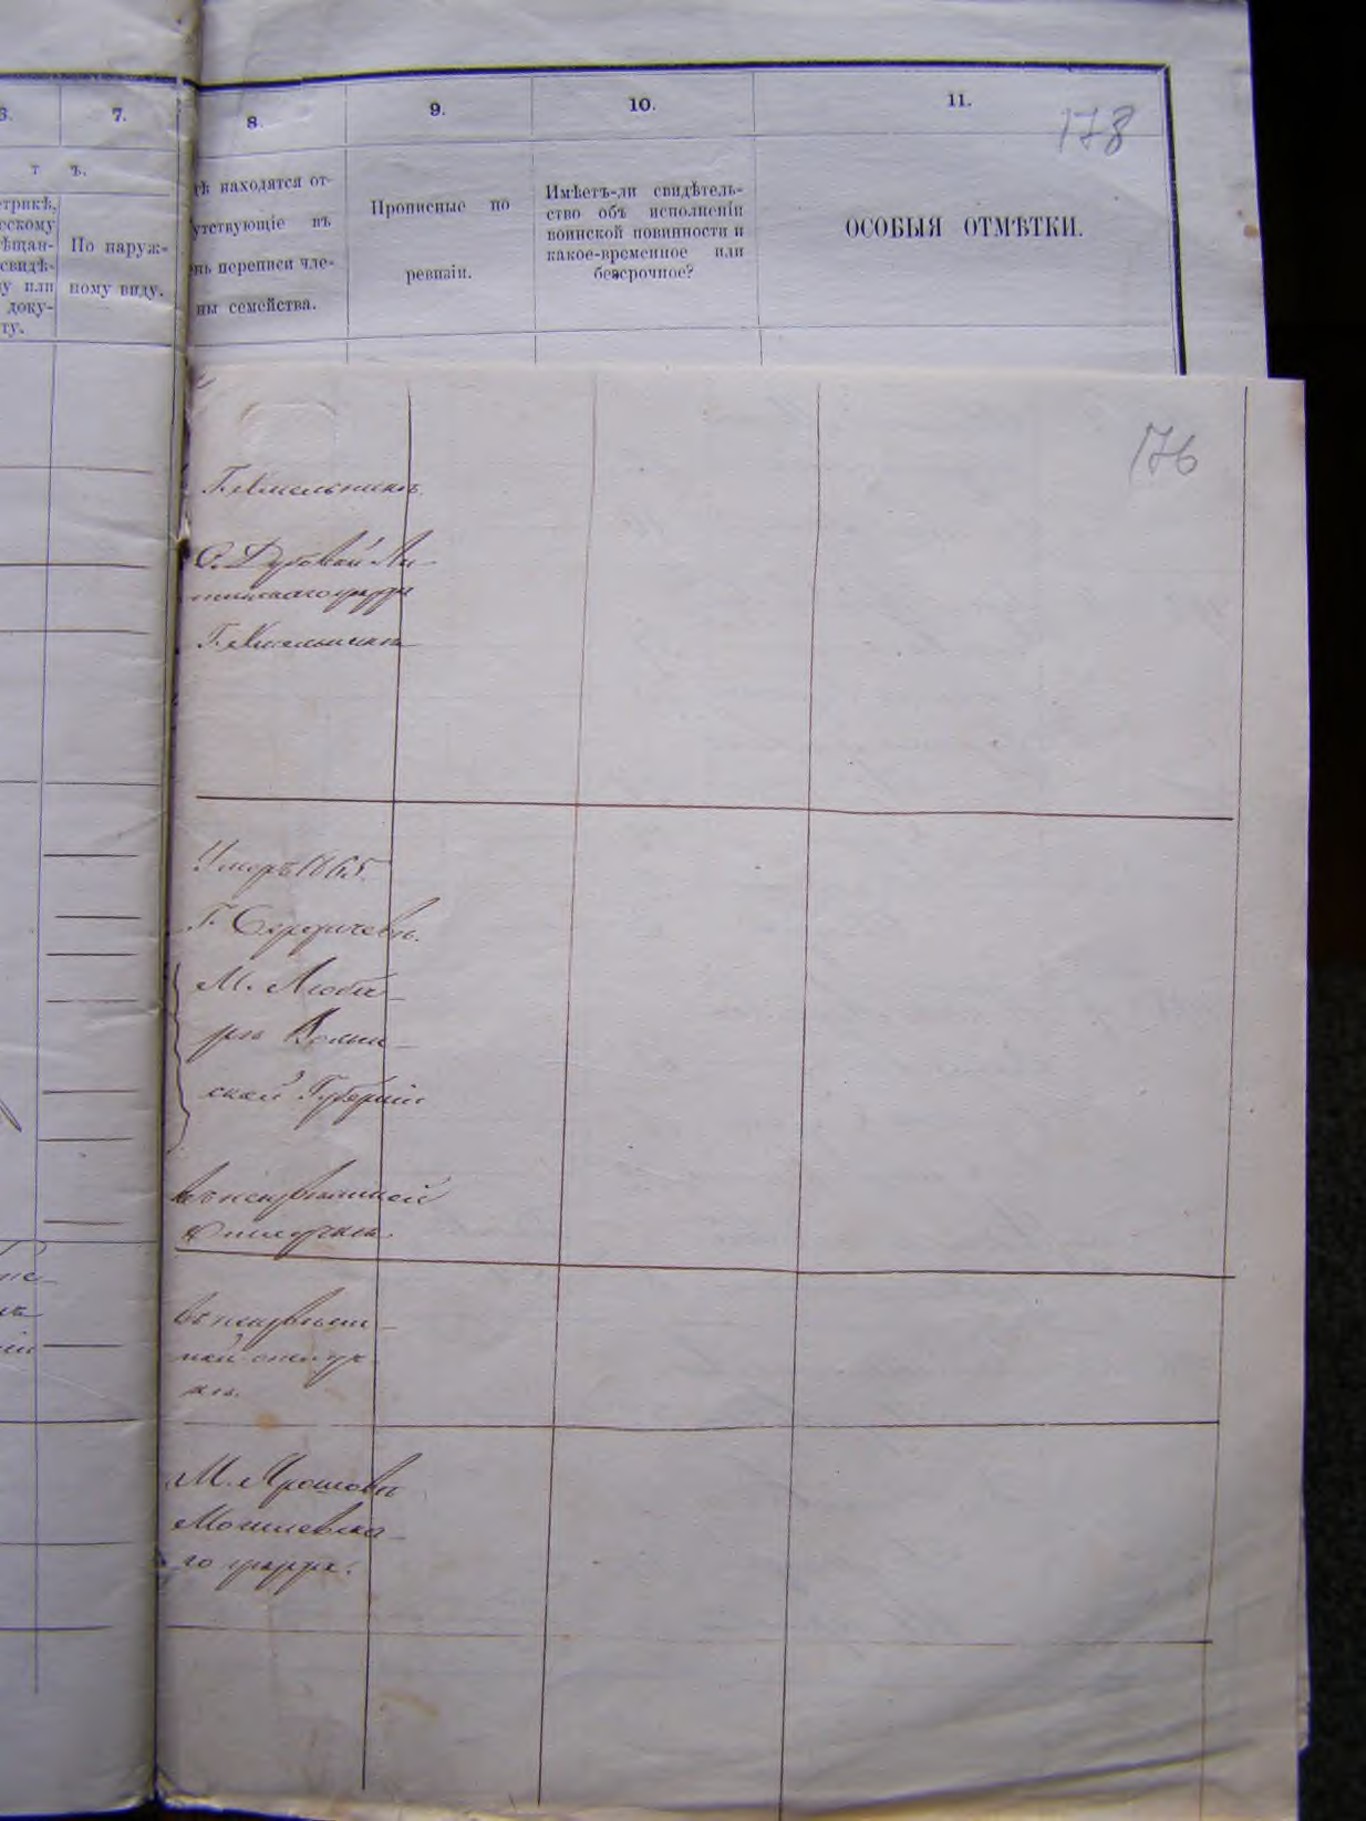 6.
7.
8.
9.
10.
11.
178
т ъ.
етрикѣ,
ескому
ѣщан-
свидѣ-
у или
доку-
ту.
По наруж-
ному виду.
дѣ находятся от-
утствующіе въ
нь переписи чле-
ны семейства.
Прописные по
ревизіи.
Имѣетъ-ли свидѣтель-
ство объ исполненіи
воинской повинности и
какое-временное или
безсрочное?
ОСОБЫЯ ОТМѢТКИ.
176
Г. Хмельникъ
С. Дубовой Ли-
тинскаго уѣзда
Г. Хмельникъ
Умеръ 1865.
М. Люба-
ръ Волын-
ской Губерніи
въ неизвѣстной
отлучкѣ.
въ неизвѣст-
ной отлуч-
кѣ.
М. Ярошовъ
Могилевска-
го уѣзда.